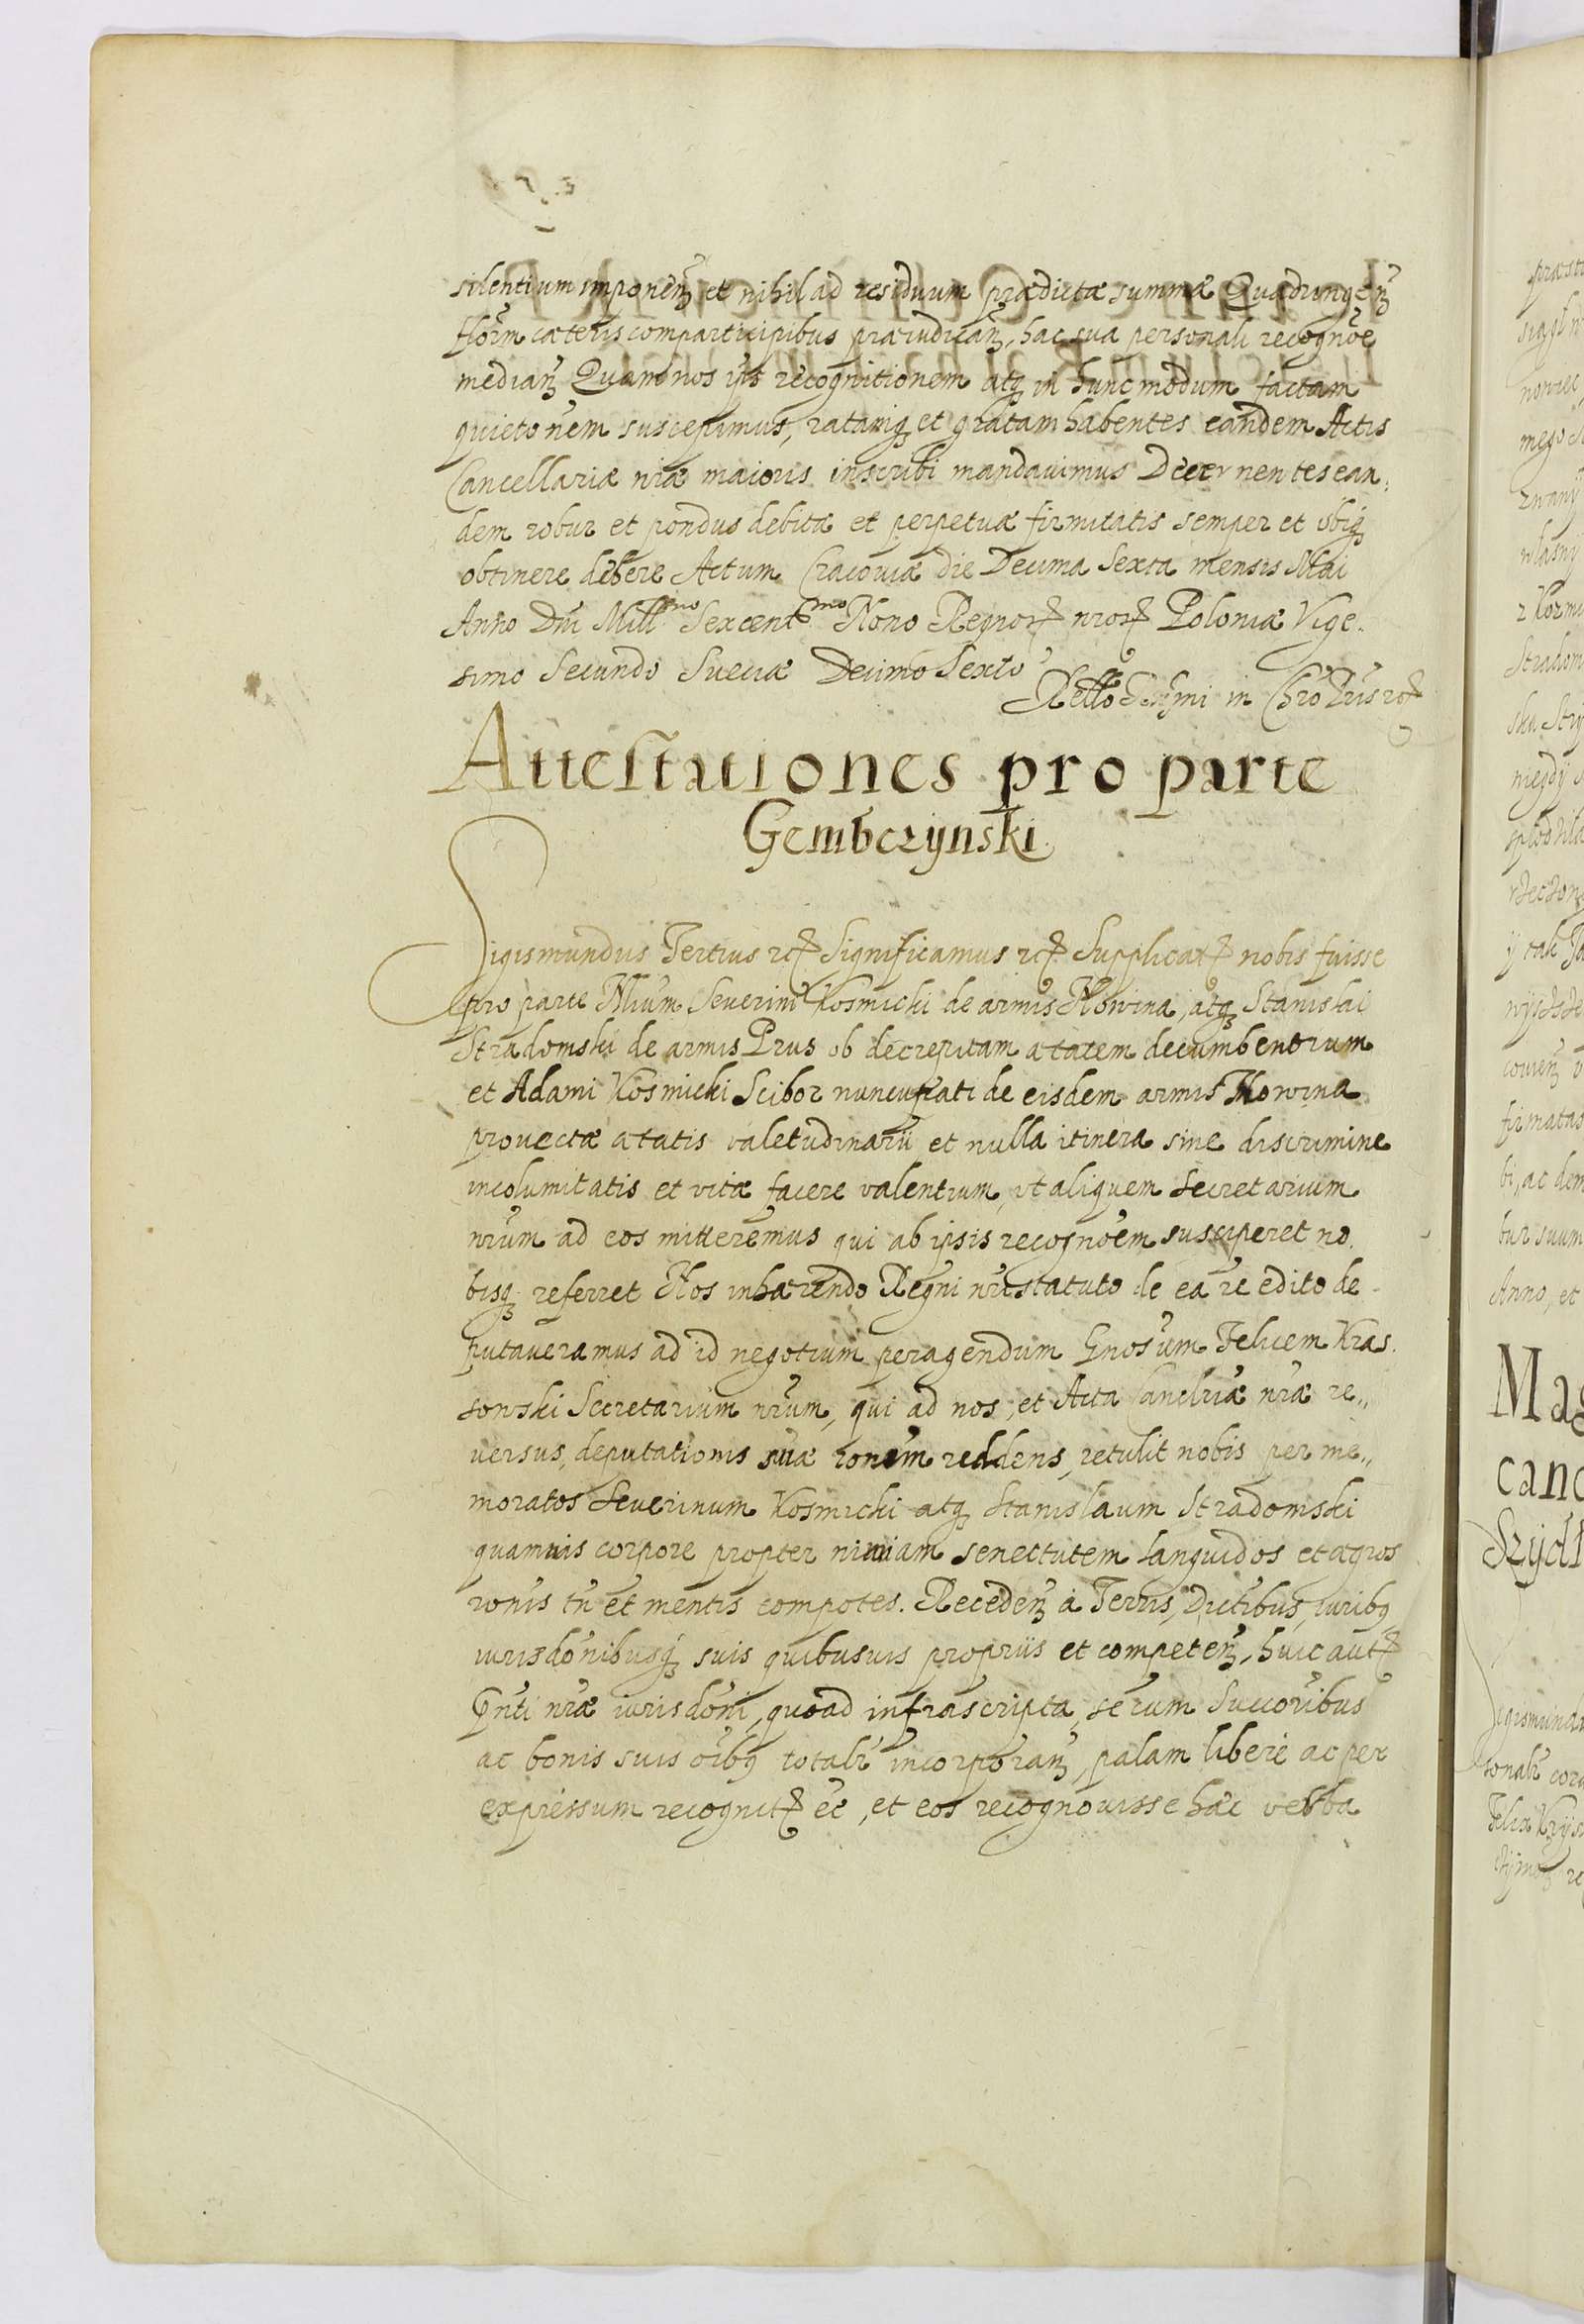 silentium imponen̄ et nihil ad residuum prædictæ summæ Quadringen̄
florm̄ cæteris comparticipibus præiudican̄, hac sua personali recognõe
median̄ Quam nos ips recognitionem atq in hunc modum factam
quieto nem suscepimus, ratamq et gratam habentes eandem Actis
Cancellariæ nræ maioris inscribi mandavimus Decernentes ean,
dem robur et pondus debitæ et perpetuæ firmitatis semper et ubiq
obtinere debere Actum Cracoviæ die Decima Sexta mensis Mai
Anno Dni Mill^mo Sexcent^mo Nono Regnor nror Poloniæ Vige..
simo Secundo Sueciæ Decimo Sexto
in Chro Pris
Attestationes pro parte
Gembczÿnski.
Sigismundus Tertius etc Significamus etc Supplicat nobis fuisse
pro parte Nlium Severini Kosmicki de armis Nowina, atq Stanislai
Stradomski de armis Prus ob decrepitam ætatem decumbentium
et Adami Kosmicki Scibor nuncupati de eisdem armis Nowina
provectæ ætatis valetudinarii et nulla itinera sine discrimine
incolumitatis et vitæ facere valentium, vt aliquem secretarium
nrum ad eos mitteremus qui ab ipsis recognõem susciperet no.
bisq referret Nos inhærendo Regni nri statuto de ea re edito de-
putaveramus ad id negotium peragendum Gnosum Felicem Kras.
sowski Secretarium nrum, qui ad nos, et Acta Canclriæ nræ re,,
versus, deputationis suæ ronem reddens, retulit nobis per me,,
moratos Severinum Kosmicki atq Stanislaum Stradomski
quamvis corpore propter nimiam senectutem languidos et ægros
ronis tn et mentis compotes. Receden̄ à Terris, Dictibus, iuribq
iurisdonibusq suis quibusvis propriis et competen̄, huic aut
Pnti nræ iurisdoni, quoad infrascripta, se cum Succoribus
ac bonis suis oibq totalr incorporan̄, palam libere ac per
expressum recognit ee, et eos recognovisse hæc verba